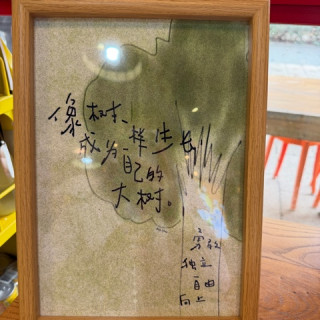 像树一样生长
成为自己的
大树。
勇敢
独立
自由
向上